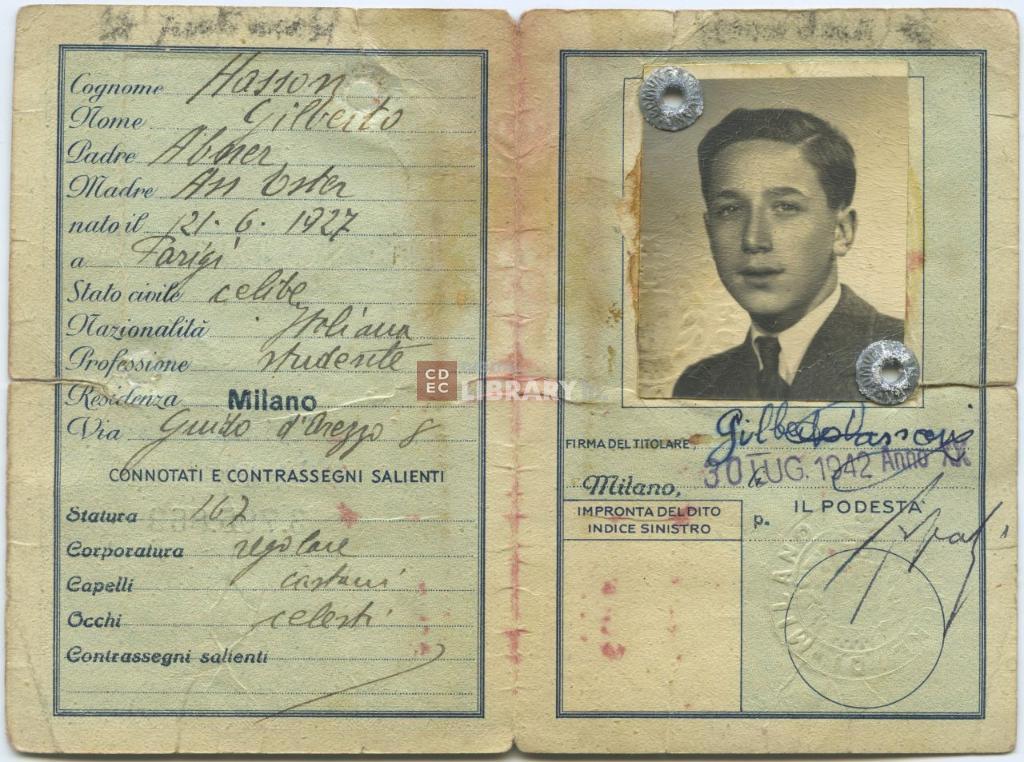 Cognome Hasson
Nome Gilberto
Padre Abner
Madre Ester
nato il 21-6-1927
a Parigi
Stato civile celibe
Nazionalità Italiana
Professione studente
Residenza Milano
Via Guido d'Arezzo 8
CONNOTATI E CONTRASSEGNI SALIENTI
Statura 167
Corporatura regolare
Capelli castani
Occhi celesti
Contrassegni salienti
CDEC LIBRARY
FIRMA DEL TITOLARE Gilberto Hasson
Milano, 30 LUG. 1942 Anno XX
IMPRONTA DEL DITO
INDICE SINISTRO
p. IL PODESTÀ